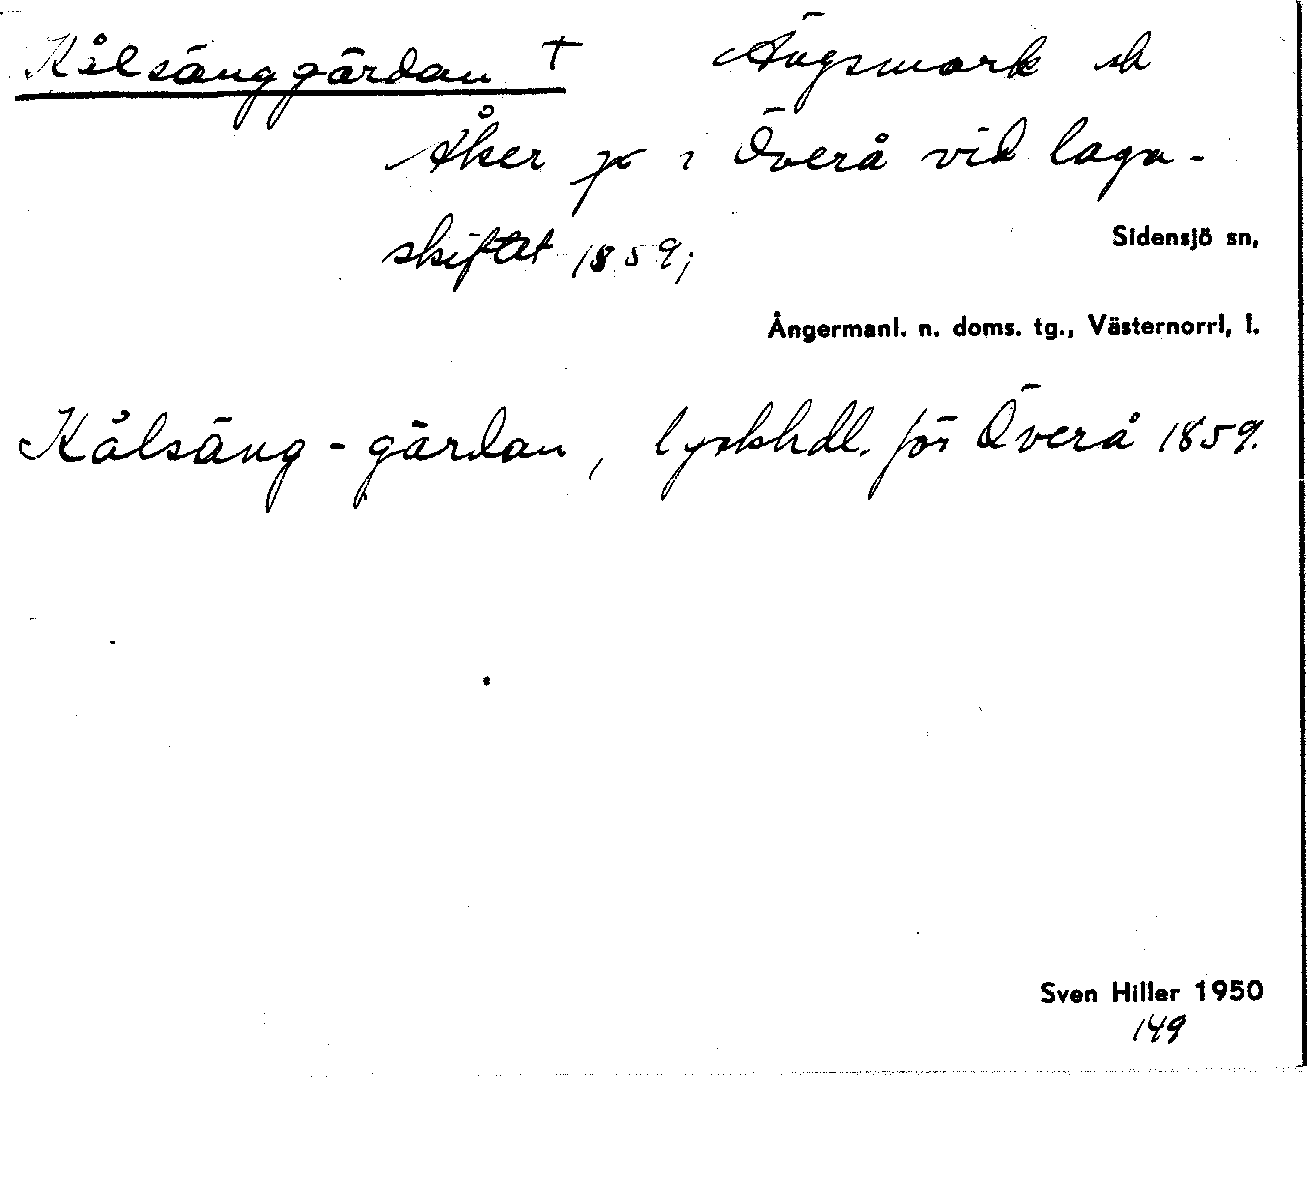 Kålsänggärdan † Ängsmark ok
Åker på i Överå vid laga-
skiftet 1859;
Sidensjö sn,
Ångermanl. n. doms. tg., Västernorrl, l.
Kålsäng-gärdan, lyskhdl. för Överå 1859.
Sven Hiller 1950
149